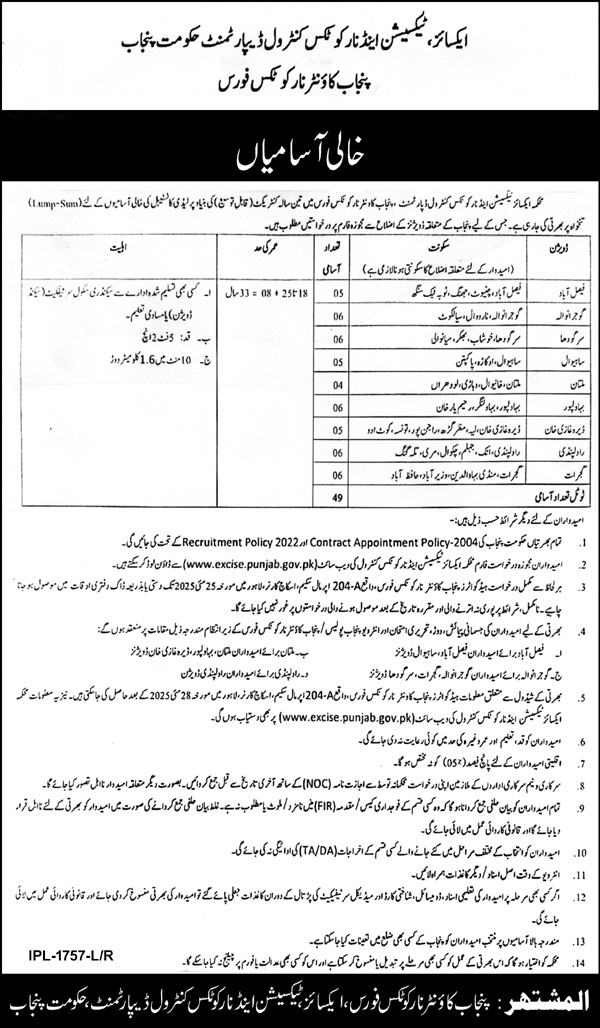 ایکسائز، ٹیکسیشن اینڈ نارکوٹکس کنٹرول ڈیپارٹمنٹ حکومت پنجاب
پنجاب کاؤنٹر نارکوٹکس فورس
خالی آسامیاں
محکمہ ایکسائز ٹیکسیشن اینڈ نارکوٹکس کنٹرول ڈیپارٹمنٹ، پنجاب کاؤنٹر نارکوٹکس فورس میں تین سالہ کنٹریکٹ (قابل توسیع) کی بنیاد پر لیڈی کانسٹیبل کی خالی آسامیوں کے لئے (Lump-Sum)
تنخواہ پر بھرتی کی جا رہی ہے۔ جس کے لیے پنجاب کے متعلقہ ڈویژنز کے اضلاع سے مجوزہ فارم پر درخواستیں مطلوب ہیں۔
ڈویژن | سکونت (امیدوار کے لئے متعلقہ اضلاع کا سکونتی ہونا لازمی ہے) | تعداد آسامی | عمر کی حد | اہلیت
فیصل آباد | فیصل آباد، چنیوٹ، جھنگ، ٹوبہ ٹیک سنگھ | 05 | 18 تا 25 + 08 = 33 سال | ا۔ کسی بھی تسلیم شدہ ادارے سے سیکنڈری سکول سرٹیفکیٹ (سیکنڈ
گوجرانوالہ | گوجرانوالہ، نارووال، سیالکوٹ | 06 | ڈویژن) یا مساوی تعلیم۔
سرگودھا | سرگودھا، خوشاب، بھکر، میانوالی | 06 | ب۔ قد: 5 فٹ 2 انچ
ساہیوال | ساہیوال، اوکاڑہ، پاکپتن | 05 | ج۔ 10 منٹ میں 1.6 کلومیٹر دوڑ
ملتان | ملتان، خانیوال، وہاڑی، لودھراں | 04
بہاولپور | بہاولپور، بہاولنگر، رحیم یار خان | 06
ڈیرہ غازی خان | ڈیرہ غازی خان، لیہ، مظفر گڑھ، راجن پور، تونسہ، کوٹ ادو | 05
راولپنڈی | راولپنڈی، اٹک، جہلم، چکوال، مری، تلہ گنگ | 06
گجرات | گجرات، منڈی بہاؤالدین، وزیر آباد، حافظ آباد | 06
ٹوٹل تعداد آسامی | 49
امیدواران کے لئے دیگر شرائط حسب ذیل ہیں:-
1. تمام بھرتیاں حکومت پنجاب کی Contract Appointment Policy-2004 اور Recruitment Policy 2022 کے تحت کی جائیں گی۔
2. امیدواران مجوزہ درخواست فارم محکمہ ایکسائز ٹیکسیشن اینڈ نارکوٹکس کنٹرول کی ویب سائٹ (www.excise.punjab.gov.pk) سے ڈاؤن لوڈ کر سکتے ہیں۔
3. ہر لحاظ سے مکمل درخواست ہیڈ کوارٹرز پنجاب کاؤنٹر نارکوٹکس فورس، واقع 204-A اپر مال سکیم، اسکاچ کارنر، لاہور میں مورخہ 25 مئی 2025 تک دستی یا بذریعہ ڈاک دفتری اوقات میں موصول ہو جانا
چاہیے۔ نامکمل، شرائط پر پوری نہ اترنے والی اور مقررہ تاریخ کے بعد موصول ہونے والی درخواستوں پر غور نہیں کیا جائے گا۔
4. بھرتی کے لئے امیدواران کی جسمانی پیمائش، دوڑ، تحریری امتحان اور انٹرویو پنجاب پولیس/پنجاب کاؤنٹر نارکوٹکس فورس کے زیر انتظام مندرجہ ذیل مقامات پر منعقد ہوں گے:
ا۔ فیصل آباد برائے امیدواران فیصل آباد، ساہیوال ڈویژنز ب۔ ملتان برائے امیدواران ملتان، بہاولپور، ڈیرہ غازی خان ڈویژنز
ج۔ گوجرانوالہ برائے امیدواران گوجرانوالہ، گجرات، سرگودھا ڈویژنز د۔ راولپنڈی برائے امیدواران راولپنڈی ڈویژن
5. بھرتی کے شیڈول سے متعلق معلومات ہیڈ کوارٹرز پنجاب کاؤنٹر نارکوٹکس فورس، واقع 204-A اپر مال سکیم، اسکاچ کارنر، لاہور میں مورخہ 28 مئی 2025 کے بعد حاصل کی جا سکتی ہیں۔ نیز یہ معلومات محکمہ
ایکسائز ٹیکسیشن اینڈ نارکوٹکس کنٹرول کی ویب سائٹ (www.excise.punjab.gov.pk) پر بھی دستیاب ہوں گی۔
6. امیدواران کو قد، تعلیم اور عمر وغیرہ کی حد میں کوئی رعایت نہ دی جائے گی۔
7. اقلیتی امیدواران کے لئے پانچ فیصد (05%) کوٹہ مختص ہو گا۔
8. سرکاری و نیم سرکاری اداروں کے ملازمین اپنی درخواست محکمانہ توسط سے اجازت نامہ (NOC) کے ساتھ آخری تاریخ سے قبل جمع کروائیں۔ بصورت دیگر متعلقہ امیدوار نااہل تصور کیا جائے گا۔
9. تمام امیدواران کو بیان حلفی جمع کرانا ہو گا کہ وہ کسی قسم کے فوجداری کیس/مقدمہ (FIR) میں نامزد/ملوث یا مطلوب نہ ہے۔ غلط بیان حلفی جمع کروانے کی صورت میں امیدوار کو بھرتی کے لئے نااہل قرار
دیا جائے گا اور قانونی کاروائی عمل میں لائی جائے گی۔
10. امیدواران کو انتخاب کے مختلف مراحل میں کئے جانے والے کسی قسم کے اخراجات (TA/DA) کی ادائیگی نہ کی جائے گی۔
11. انٹرویو کے وقت اصل اسناد/دیگر کاغذات ہمراہ لائیں۔
12. اگر کسی بھی مرحلہ پر امیدوار کی تعلیمی اسناد، ڈومیسائل، شناختی کارڈ اور میڈیکل سرٹیفکیٹ کی پڑتال کے دوران کاغذات جعلی پائے گئے تو امیدوار کی بھرتی منسوخ کر دی جائے اور قانونی کاروائی عمل میں لائی
جائے گی۔
13. مندرجہ بالا آسامیوں پر منتخب امیدواران کو پنجاب کے کسی بھی ضلع میں تعینات کیا جا سکتا ہے۔
14. محکمہ کو اختیار ہو گا کہ اس بھرتی کے عمل کو کسی بھی مرحلے پر تبدیل یا منسوخ کر سکتا ہے اور اس کو کسی بھی عدالت یا فورم پر چیلنج نہیں کیا جا سکے گا۔
IPL-1757-L/R
المشتہر: پنجاب کاؤنٹر نارکوٹکس فورس، ایکسائز، ٹیکسیشن اینڈ نارکوٹکس کنٹرول ڈیپارٹمنٹ، حکومت پنجاب